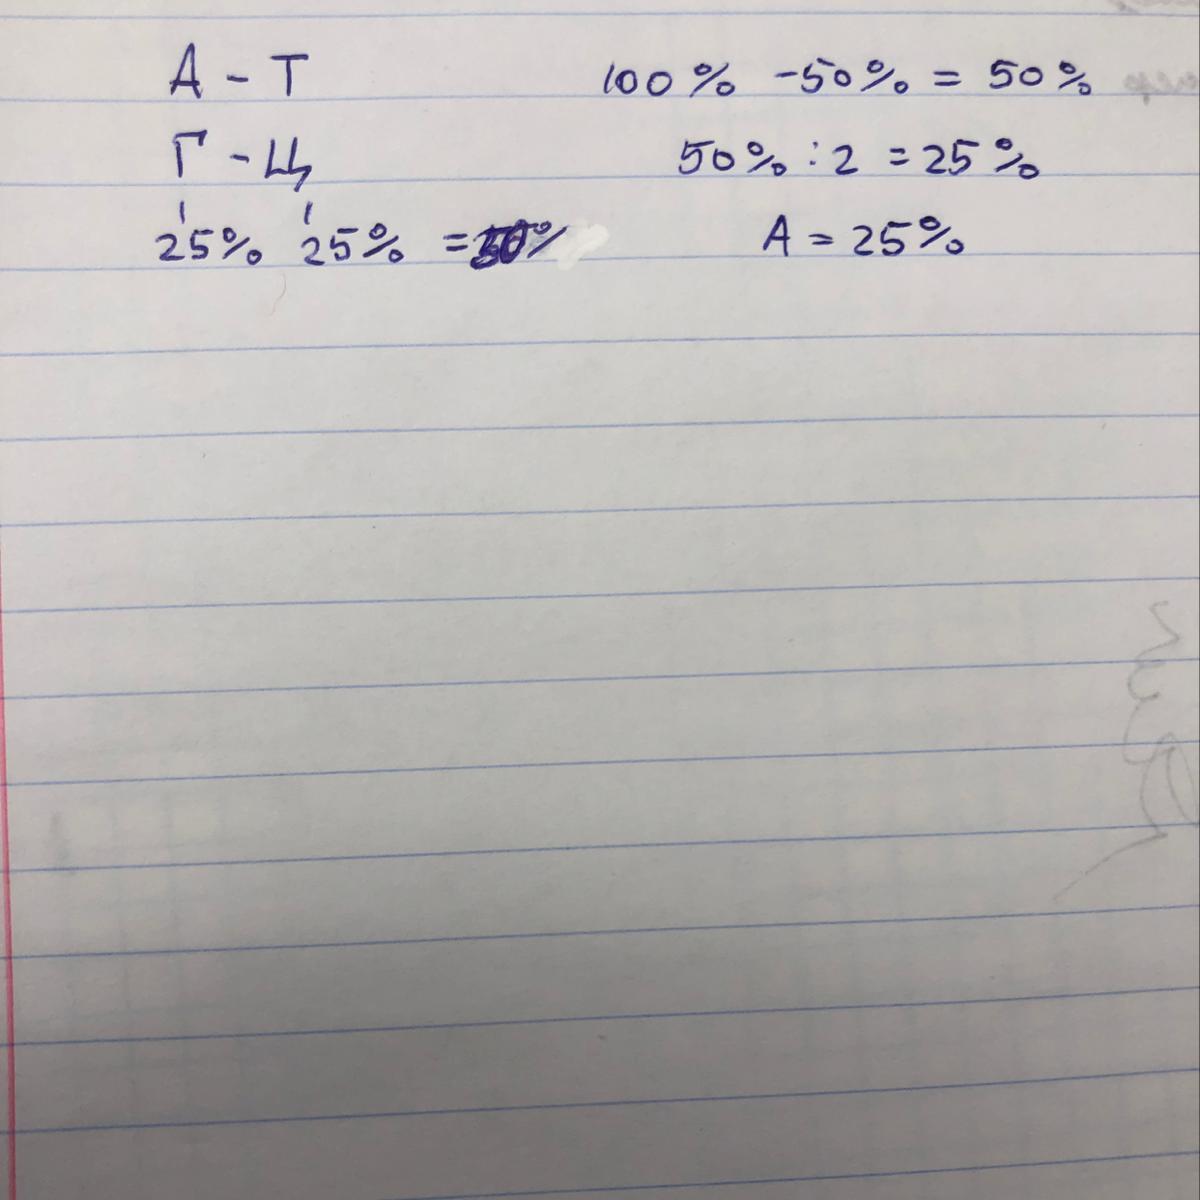 А - Т
Г - Ц
25% 25% = 50%
100% - 50% = 50%
50% : 2 = 25%
А = 25%